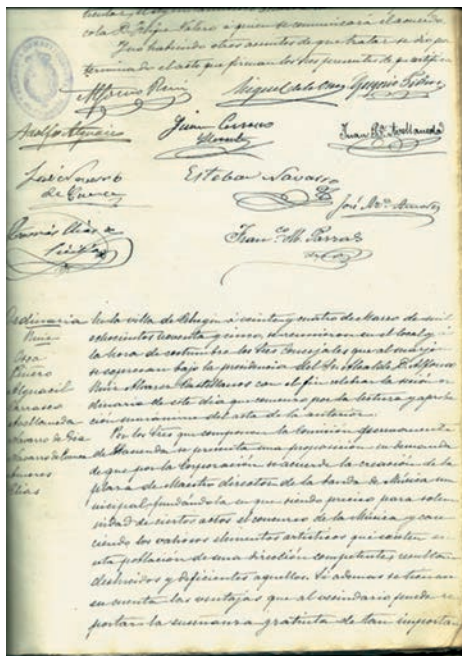 cola D. Felipe Valero á quien se comunicará el acuerdo
Que habiendo otros asuntos de que tratar se dió por
terminado el acto que firman los Sres presentes de que certifico
Alfonso Ruiz Miguel de la Ossa Gregorio Piñero
Adolfo Alguacil Juan Carrasco Juan Rº Avellaneda
Llorente
José Navarro Esteban Navarro
de Cuenca José Mª Amores
Tomás Elias
Franco M. Parras
Ordinaria En la villa de Cehegin á veinte y cuatro de Marzo de mil
Ruiz ochocientos noventa y cinco, se reunieron en el local y á
Osea la hora de costumbre los Sres Concejales que al margen
Piñero se expresan bajo la presidencia del Sr. Alcalde D. Alfonso
Alguacil Ruiz Alvarez Castellanos con el fin celebrar la sesion or-
Carrasco dinaria de este dia que comenzó por la lectura y aproba
Avellaneda ción unánime del acta de la anterior.
Navarro de Gea Por los Sres que componen la Comisión permanente
Navarro de Cuenca de Hacienda se presenta una proposición en demanda
Amores de que por la Corporacion se acuerde la creación de la
Elias plaza de Maestro director de la banda de Música mu
nicipal fundándola en que siendo preciso para solem
nidad de ciertos actos el concurso de la Música y care
ciendo los valiosos elementos artísticos que existen en
esta población de una dirección competente, resultan
deslucidos y deficientes aquellos. Si ademas se tienen
en cuenta las ventajas que al vecindario puede re
portar la enseñanza gratuita de tan importan